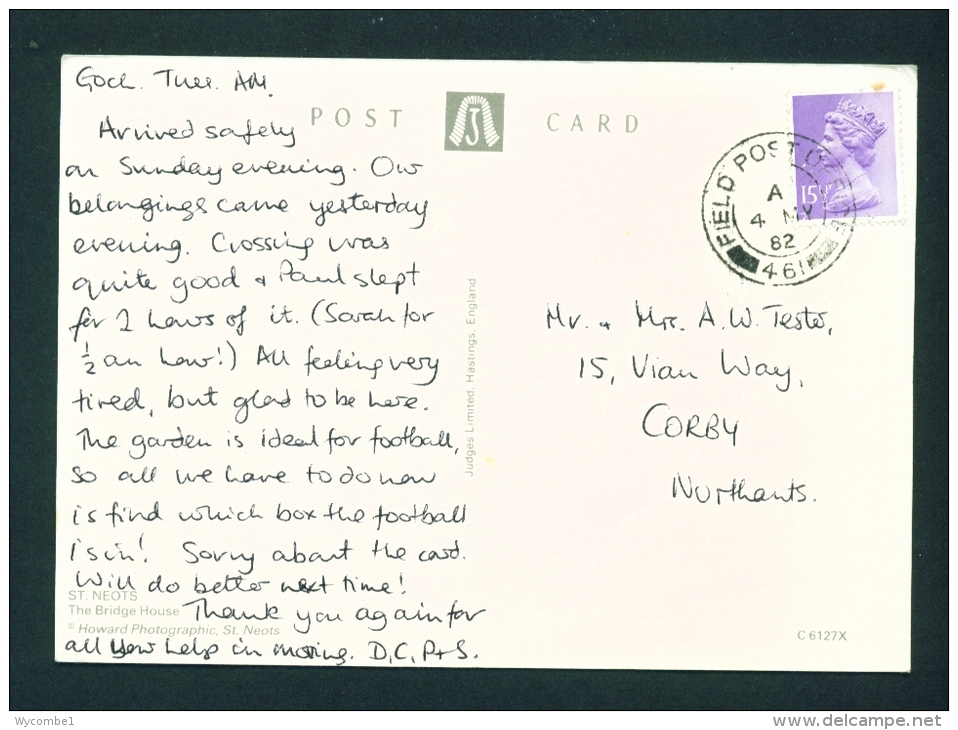 Goch. Tues. AM.
Arrived safely
on Sunday evening. Our
belongings came yesterday
evening. Crossing was
quite good & Paul slept
for 2 hours of it. (Sarah for
½ an hour!) All feeling very
tired, but glad to be here.
The garden is ideal for football,
so all we have to do now
is find which box the football
is in! Sorry about the card.
Will do better next time!
Thank you again for
all your help in moving. D, C, P + S.
ST. NEOTS
The Bridge House
© Howard Photographic, St. Neots
POST CARD
J
Judges Limited, Hastings, England
FIELD POST OFFICE
A
4 MY
82
461
15½P
Mr. & Mrs. A.W. Tester,
15, Vian Way,
CORBY
Northants.
C 6127X
Wycombe1
http://www.delcampe.net